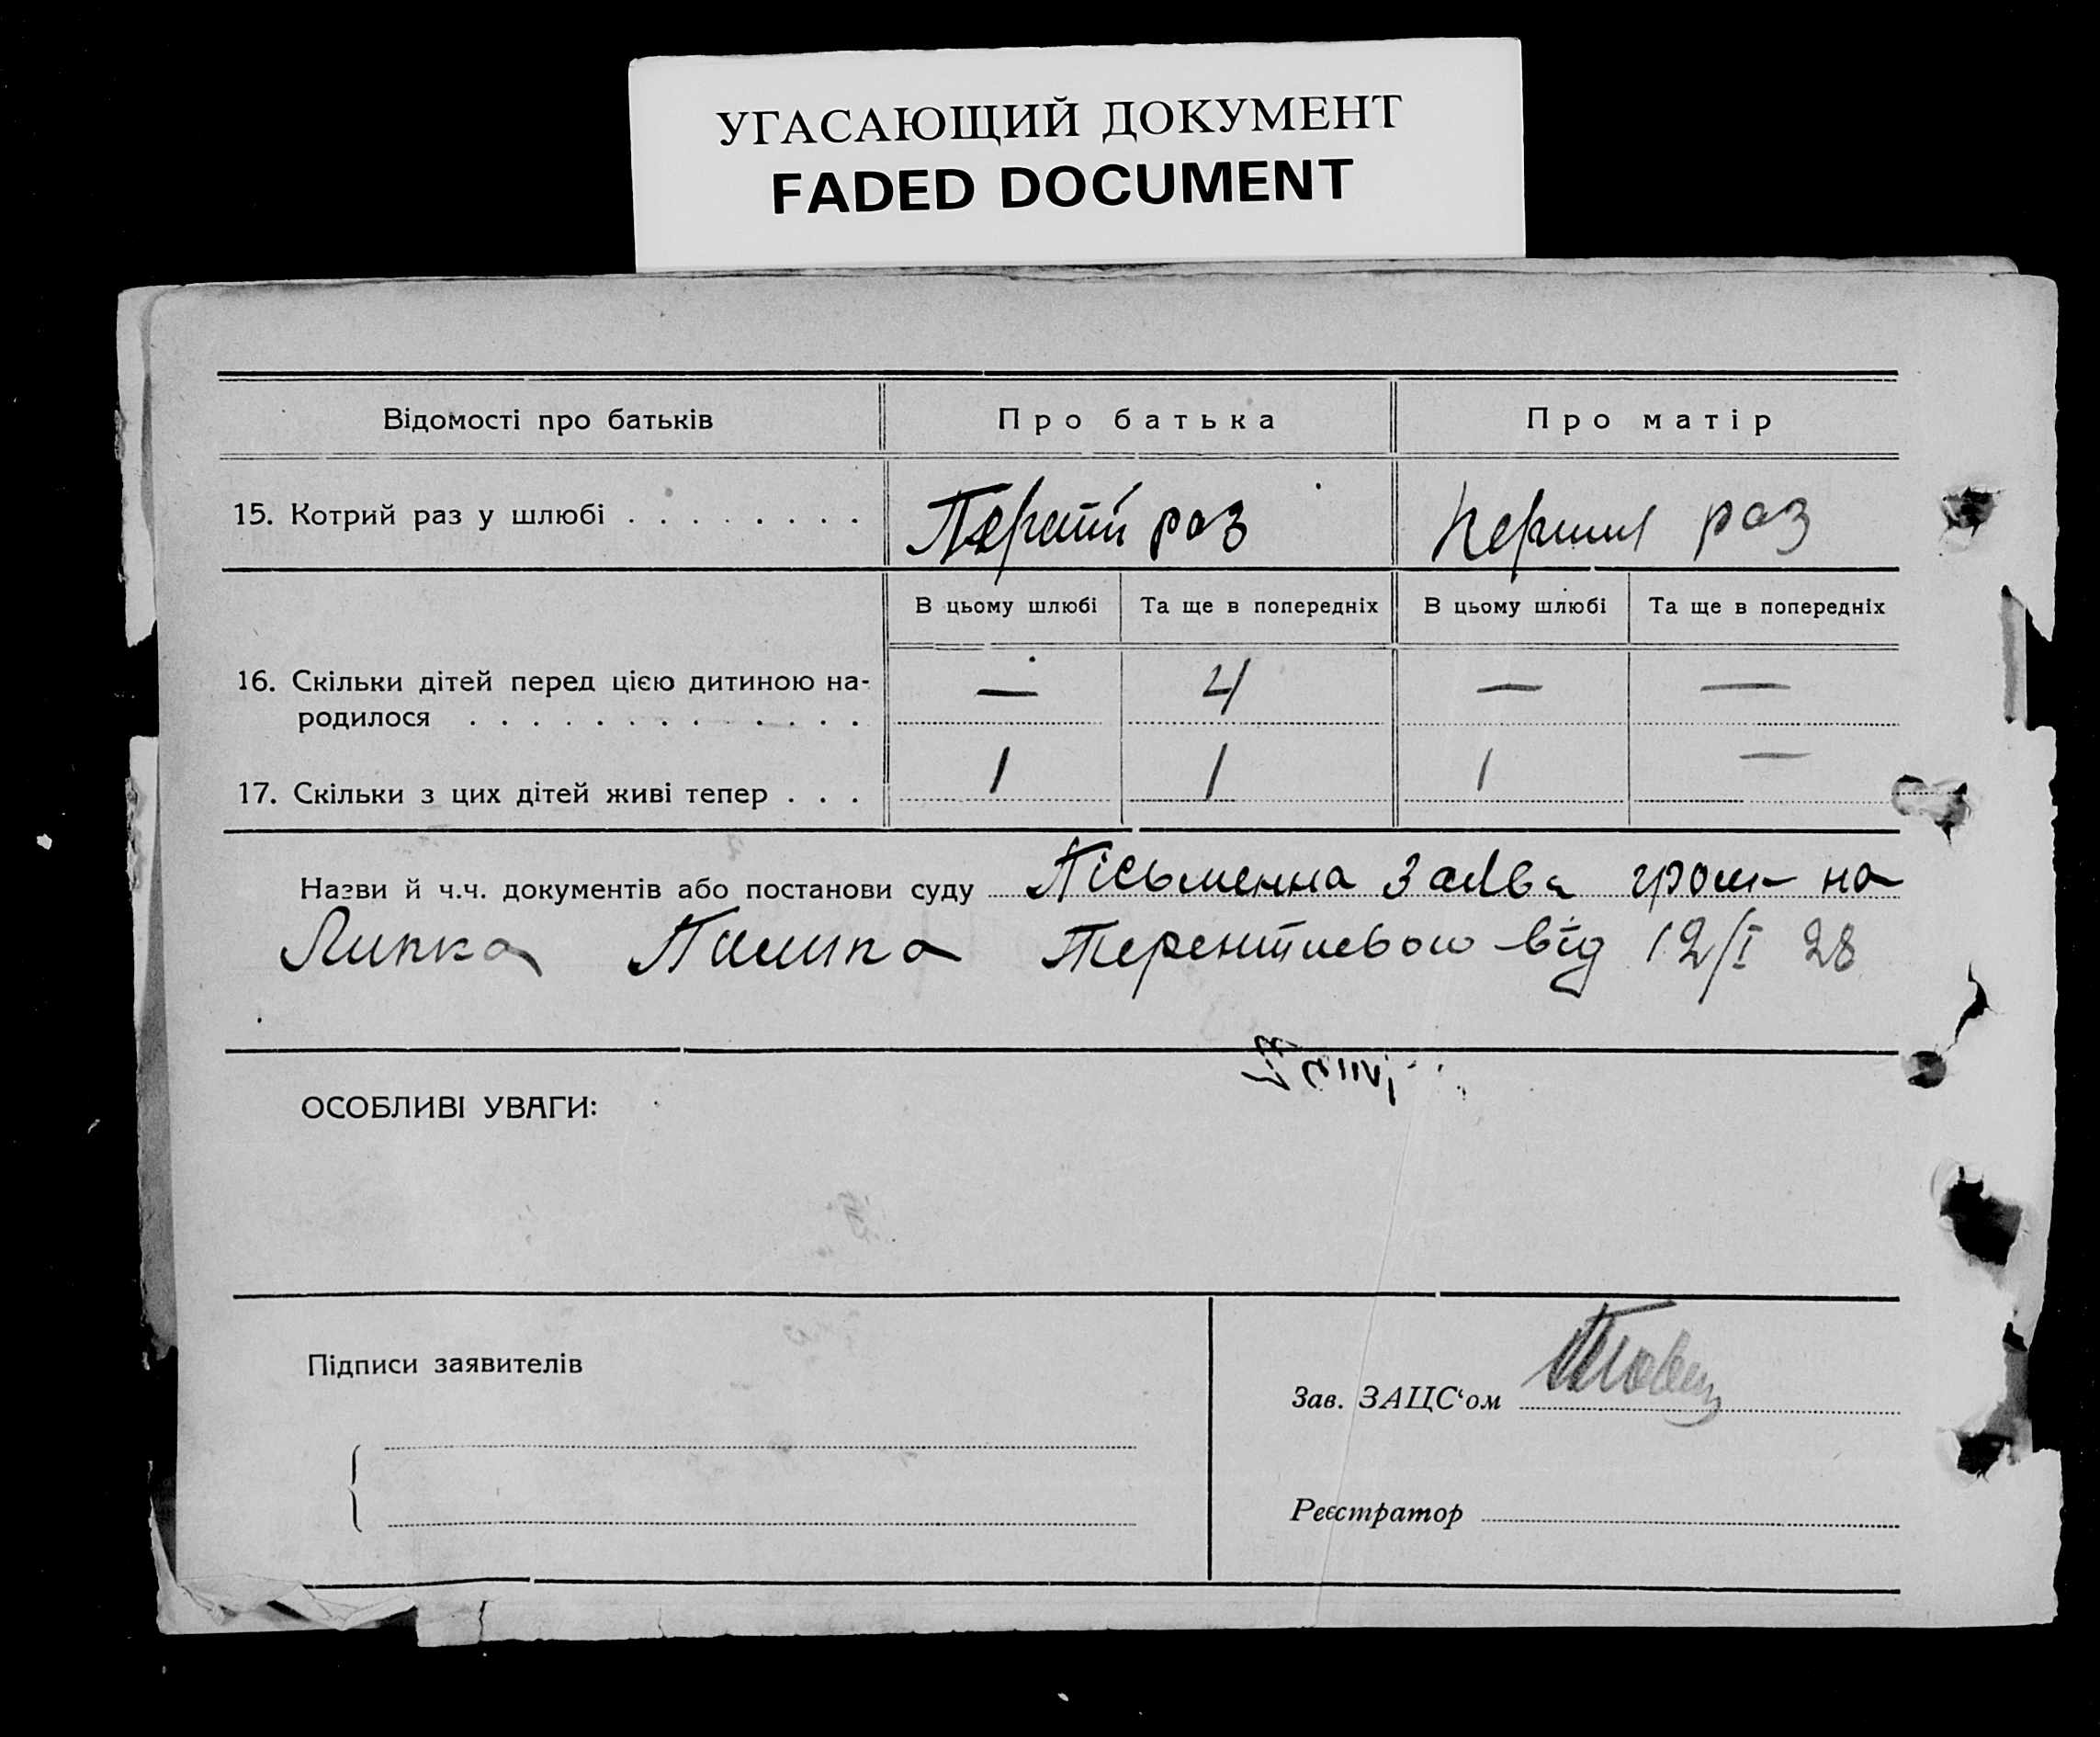 УГАСАЮЩИЙ ДОКУМЕНТ
FADED DOCUMENT
Відомості про батьків Про батька Про матір
15. Котрий раз у шлюбі . . . . . . . . Перший раз Перший раз
В цьому шлюбі Та ще в попередніх В цьому шлюбі Та ще в попередніх
16. Скільки дітей перед цією дитиною на- — 4 — —
родилося . . . . . . . . . . . . .
17. Скільки з цих дітей живі тепер . . . 1 1 1 —
Назви й ч.ч. документів або постанови суду Письменна заява гром-на
Липка Терентиевою від 12/I 28
ОСОБЛИВІ УВАГИ:
Підписи заявителів
Зав. ЗАЦС‘ом
Реєстратор